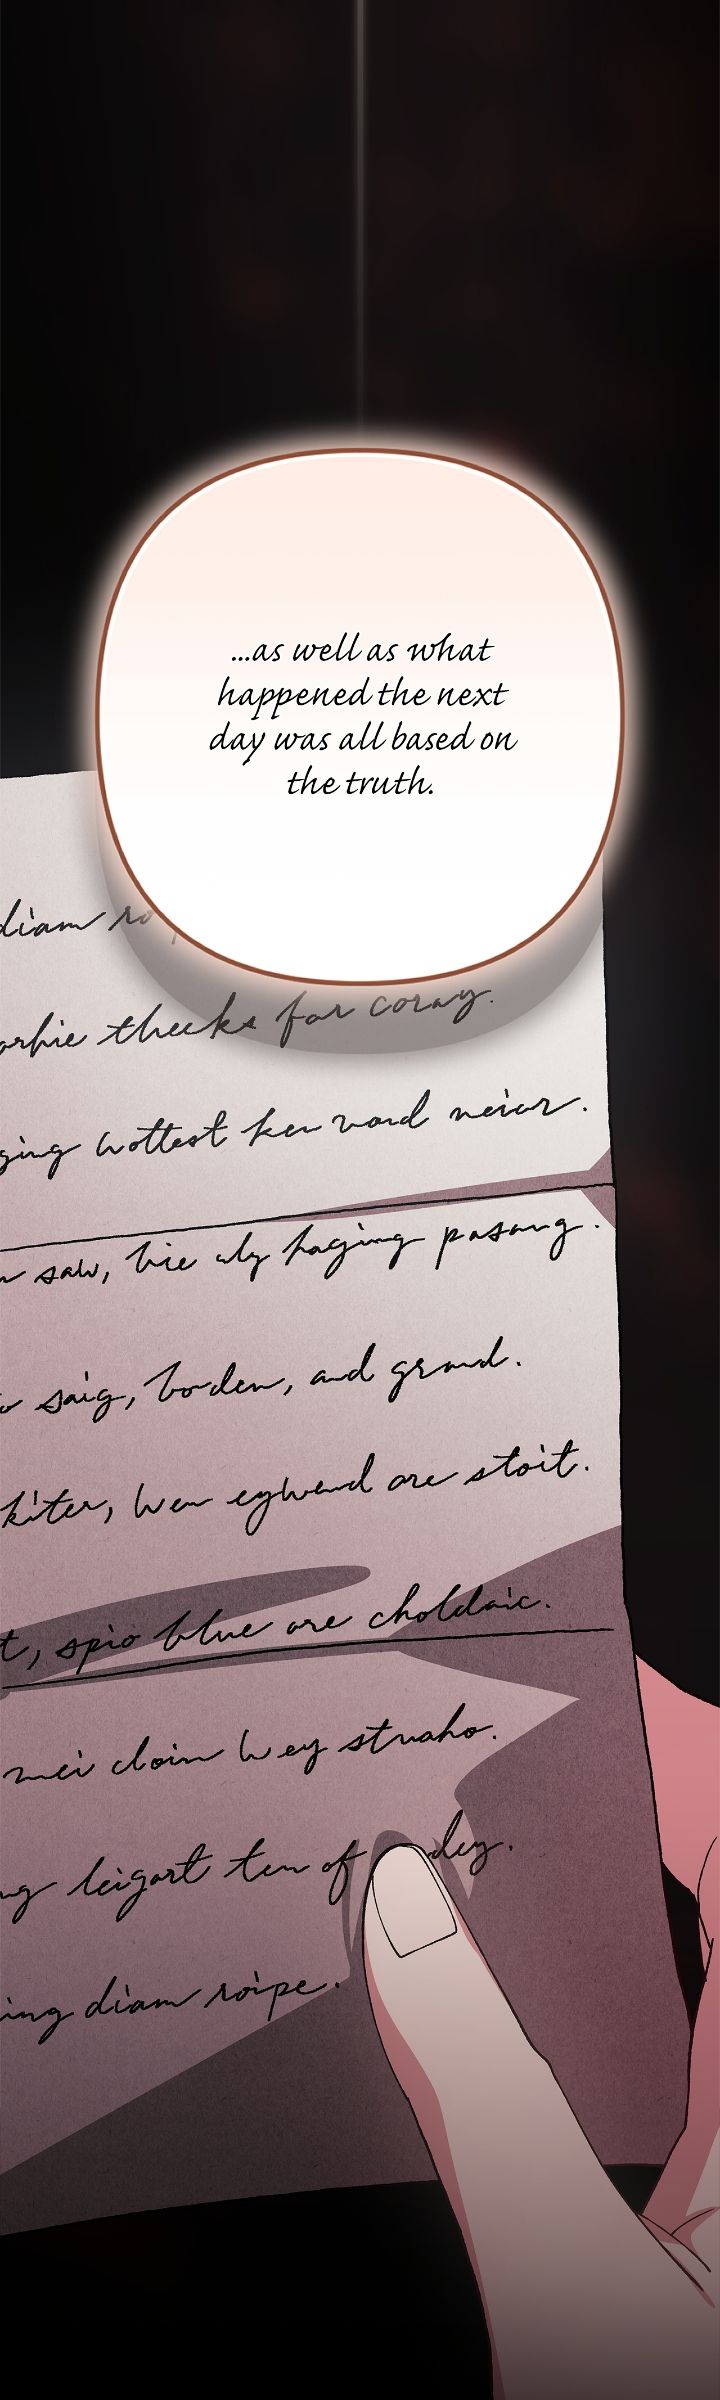 ...as well as what
happened the next
day was all based on
the truth.
diam
theeks for coray.
ging wottest ken vord neiur.
saw, hie wly haging pasang.
saig, borden, and grand.
kiter, wen eywend are stoit.
t, spio blue are choldaic.
mei cloin wey struaho.
ng leigart ten of dey.
ing diam roipe.